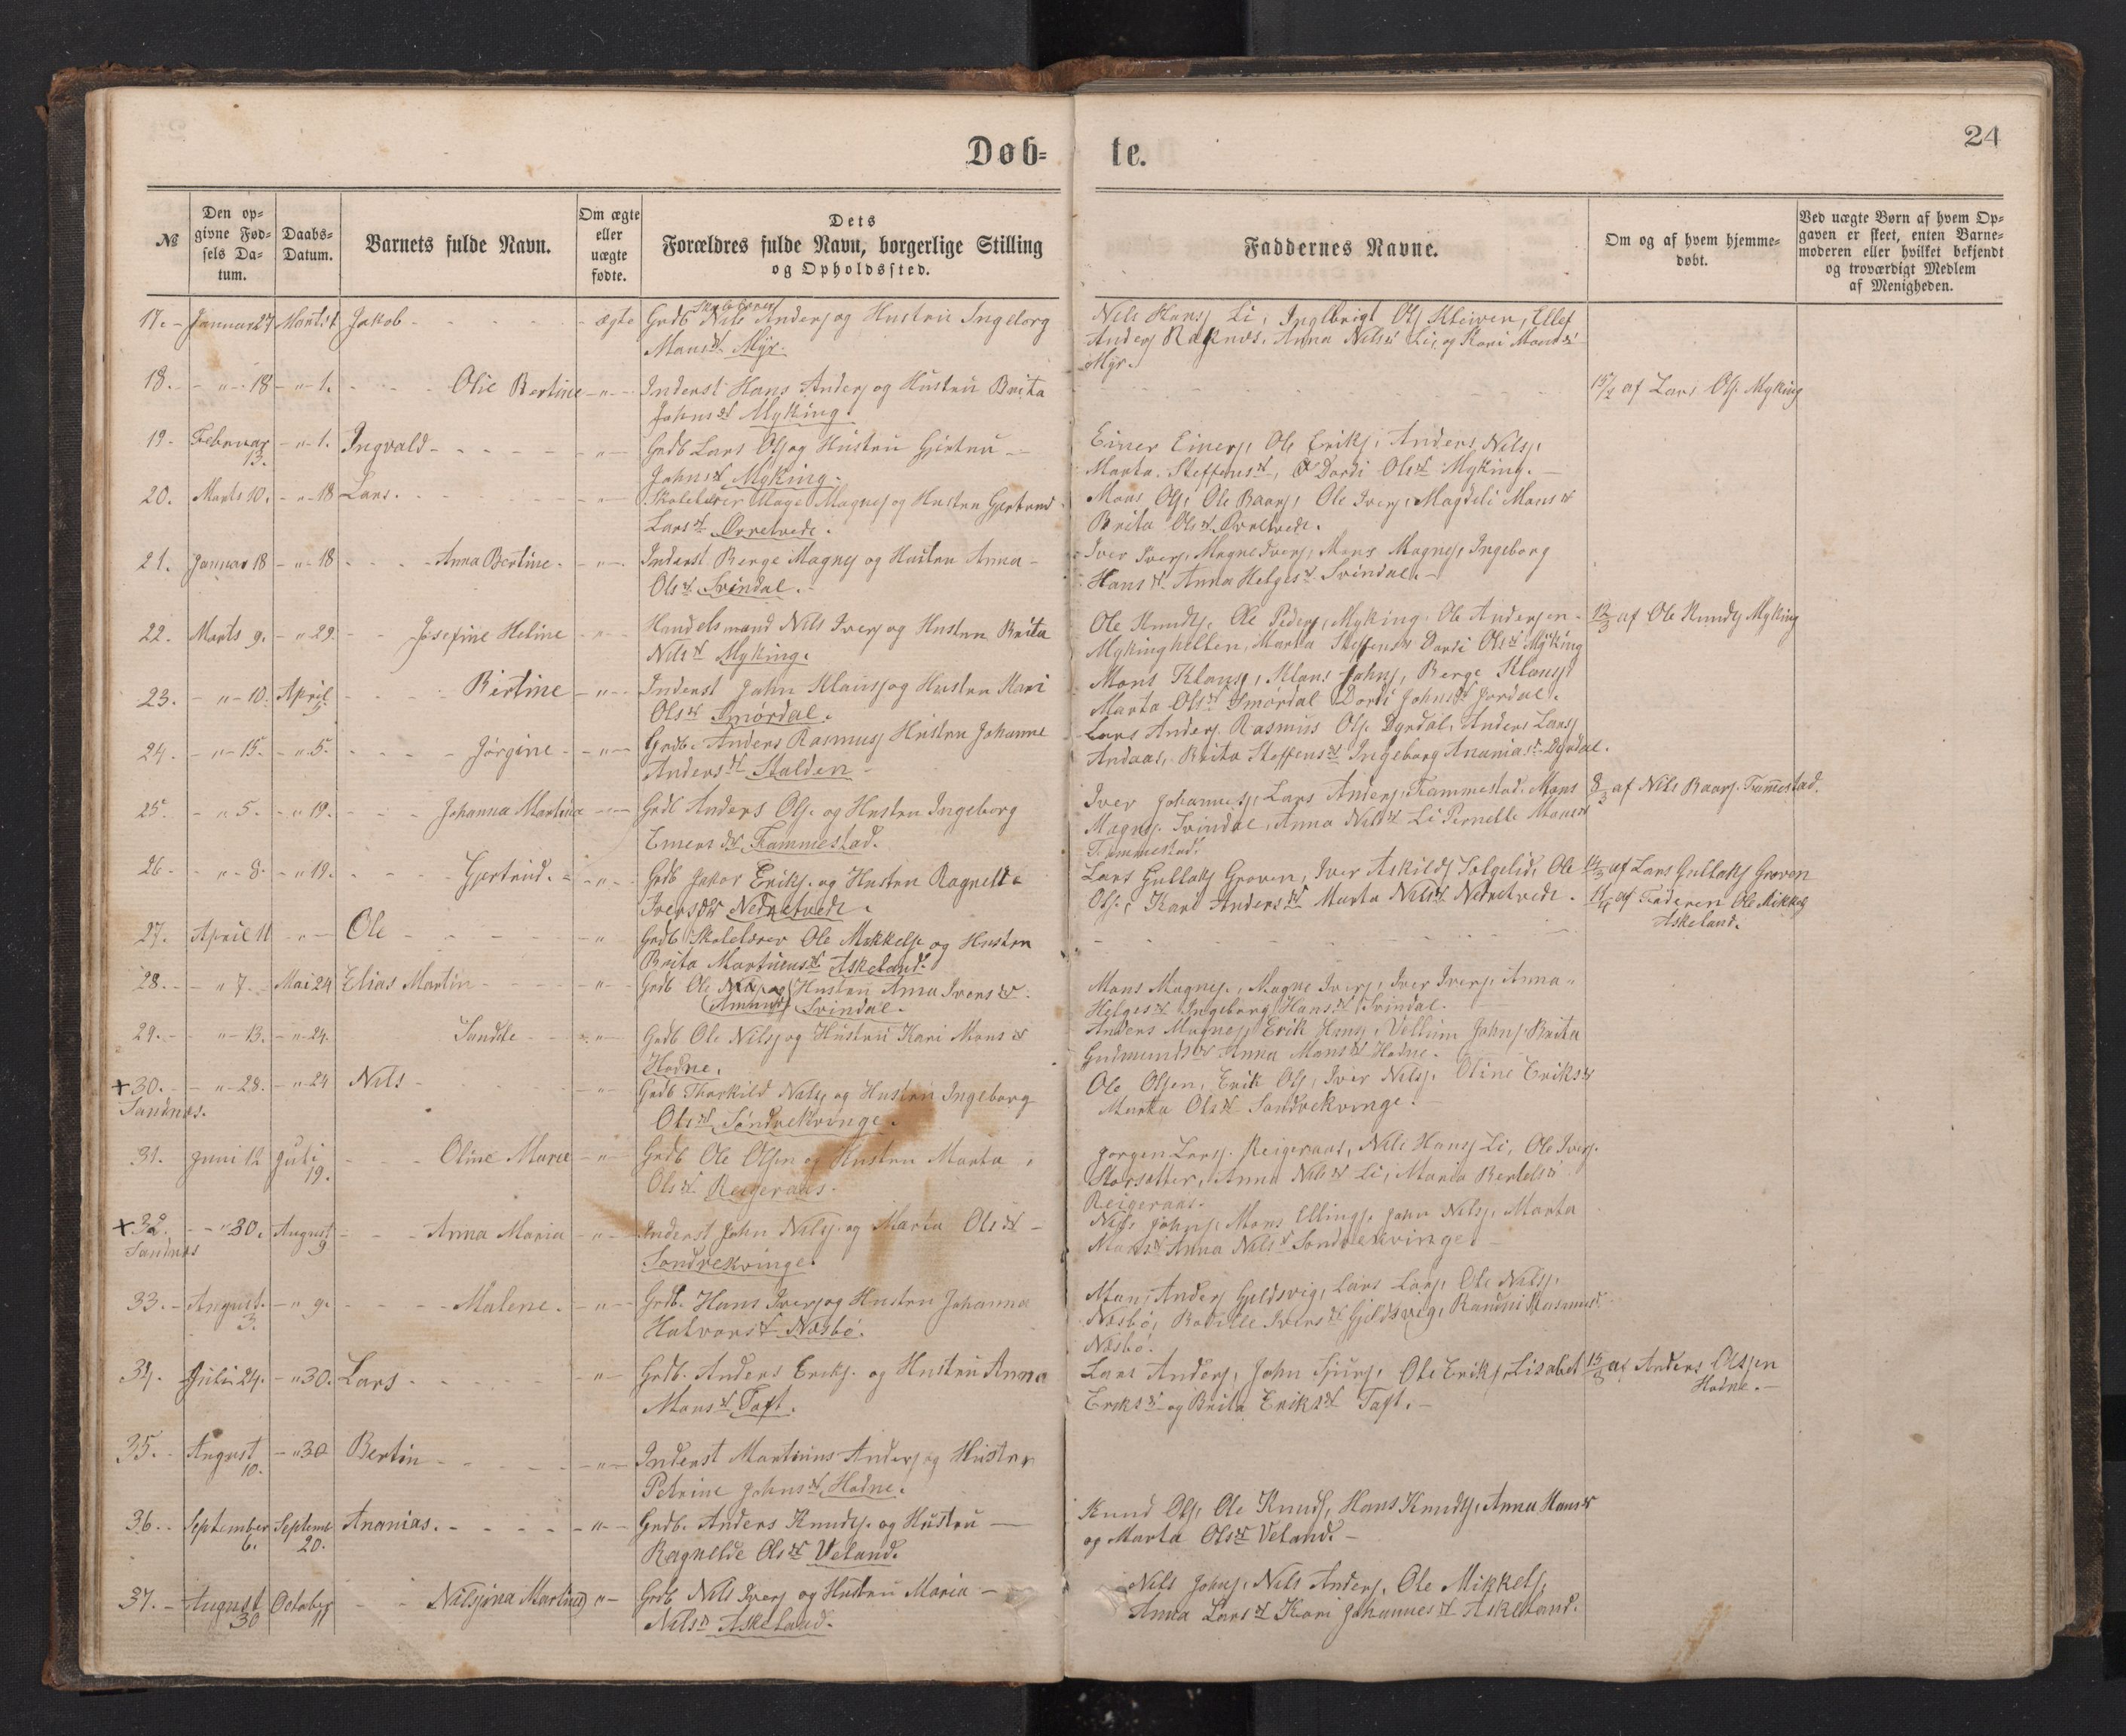 24
Døb-
te.
№
Den op-
givne Fød-
sels Da-
tum.
Daabs-
Datum.
Barnets fulde Navn.
Om ægte
eller
uægte
fødte.
Dets
Forældres fulde Navn, borgerlige Stilling
og Opholdssted.
Faddernes Navne.
Om og af hvem hjemme-
døbt.
Ved uægte Børn af hvem Op-
gaven er skeet, enten Barne-
moderen eller hvilket bekjendt
og troværdigt Medlem
af Menigheden.
17. Januar 27 Marts 1 Jakob ægte Grdb Skolelærer Nils Andersj og Hustru Ingeborg
Monsdt Myr.
Nils Hansj Li, Inglbrigt Olsj Kleiven, Ellef
Andersj Raknæs, Anna Nilsdt Li, og Kari Monsdt
Myr.
18. - " - 18 - " - 1. Olie Bertine - " - Inderst Hans Andersj og Hustru Brita
Johnsdt Myking.
af Lars Olsj. Myking
19. Februar
13. - " 1. Ingvald - " - Grdb Lars Olsj og Hustru Gjertru
Johnsdt Myking.
Einer Einersj, Ole Eriksj, Anders Nilsj,
Marta Steffensdt, Dordi Olsdt Myking.
20. Marts 10. - " 18 Lars. - " - Skolelærer Mage Magnesj og Hustru Gjertrud
Larsdt Øvretvedt.
Mons Olsj, Ole Baarsj, Ole Iversj, Magdeli Monsdt
Brita Olsdt Øvretvedt.
21. Januar 18 - " - 18 Anna Bertine. - " - Inderst Berge Magnesj og Hustru Anna
Olsdt Svindal.
Iver Iversj, Magne Iversj, Mons Magnesj, Ingeborg
Hansdt Anna Helgesdt Svindal.
22. Marts 9. - " 29. Josefine Heline - " - Handelsmand Nils Iversj og Hustru Brita
Nilsdt Myking.
Ole Knudsj. Ole Pedersj, Myking. Ole Andersen
Mykinghelten, Marta Steffensdt Dordi Olsdt Myking
12/3 af Ole Knudsj Myking
23. - " - 10. April
5. Birtine - " - Inderst John Klausj og Hustru Kari
Olsdt Smørdal.
Mons Klausj, Klaus Johnsj, Berge Klausj
Marta Olsdt Smørdal Dordi Johnsdt Jordal.
24. - " - 15. - " 5. Jørgine - " - Grdb. Anders Rasmusj Hustru Johanne
Andersdt Stalden
Lars Andersj Rasmus Olsj. Dyrdal, Anders Larsj
Andaas, Brita Steffensdt Ingeborg Ananiasdt Dyrdal.
25. - " 5. - " 19. Johanna Martina - " - Grdb Anders Olsj. og Hustru Ingeborg
Einersdt Frammestad.
Iver Johannesj, Lars Andersj, Frammestad. Mons
Magnesj. Svindal, Anna Nilsdt Li Pernelle Monsdt
Frammestad.
8/3 af Nils Baarsj. Frammestad.
26. - " - 8. - " 19. Gjertrud. - " - Grdb Jakob Eriksj. og Hustru Ragnelde
Iversdt Nedretvedt.
Lars Gullaksj Groven, Iver Askildsj Solgelid, Ole
Olsj., Kari Andersdt Marta Nilsdt Nedretvedt.
af Lars Gullaksj Groven
27. April 11 - " - Ole - " Grdb Skolelærer Ole Mikkelsj og Hustru
Brita Martinusdt Askeland.
11/4 af Faderen Ole Mikkelsj
Askeland.
28. - " 7. - Mai 24 Elias Martin - " - Grdb Ole og Hustru Anna Iversdt.
Svindal.
Mons Magnesj., Magne Iversj, Iver Iversj. Anna
Helgesdt Ingeborg Hansdt Svindal.
29. - " - 13. - " - 24. Sundle - " - Grdb Ole Nilsj og Hustru Kari Monsdt
Hodne.
Anders Magnesj, Erik Hansj Nellum Johnsj Brita
Gudmundsdt Anna Monsdt Hodne.
+ 30.
Sandnæs. - " - 28. - " 24 Nils - " - Grdb Thorkild Nilsj. og Hustru Ingeborg
Olsdt Søndrekvinge.
Ole Olsen, Erik Olsj, Iver Nilsj. Oline Eriksdt
Marta Olsdt Søndrekvinge.
31. Juni 12 Juli
19. Oline Marie - " - Grdb Ole Olsen og Hustru Marta
Olsdt Reigeraas.
Jørgen Larsj. Reigeraas, Nils Hansj Li, Ole Iversj.
Storsætter, Anna Nilsdt Li, Maria Bertelsdt
Reigeraas.
+ 32.
Sandnæs - " 30. August
9 Anna Maria - " - Inderst John Nilsj. og Marta Olsdt
Søndrekvinge.
Nils Johnsj. Mons Ellingj. John Nilsj. Marta
Monsdt Anna Nilsdt Søndrekvinge.
33. August.
3. - " 9. Malene. - " - Grdb. Hans Iversj og Hustru Johanna
Halvorsdt Næsbø.
Mons Andersj Gjeldsvig, Lars Larsj. Ole Nilsj.
Næsbø, Iversdt Gjeldsvig, Randni Rasmusdt
Næsbø.
34. Juli 24. - " 30. Lars - " - Grdb. Anders Eriksj. og Hustru Anna
Monsdt Toft.
Lars Andersj, John Sjursj. Ole Eriksj, Lisabet
Eriksdt og Brita Eriksdt Toft.
15/8 af Anders Olsen
Hodne.
35. August
10. - " 30 Bertin - " - Inderst Martinus Andersj og Hustru
Petrine Johnsdt Hodne.
36. September
6. Septemb
20. Ananias. - " - Grdb. Anders Knudsj. og Hustru
Ragnelde Olsdt Veland.
Knud Olsj. Ole Knudsj, Hans Knudsj, Anna Hansdt
og Marta Olsdt Veland.
37. August
30 October
11 Nilsjina Martina - " - Grdb Nils Iversj og Hustru Maria
Nilsdt Askeland.
Nils Johnsj, Nils Andersj. Ole Mikkelsj.
Anna Larsdt Kari Johannesdt Askeland.